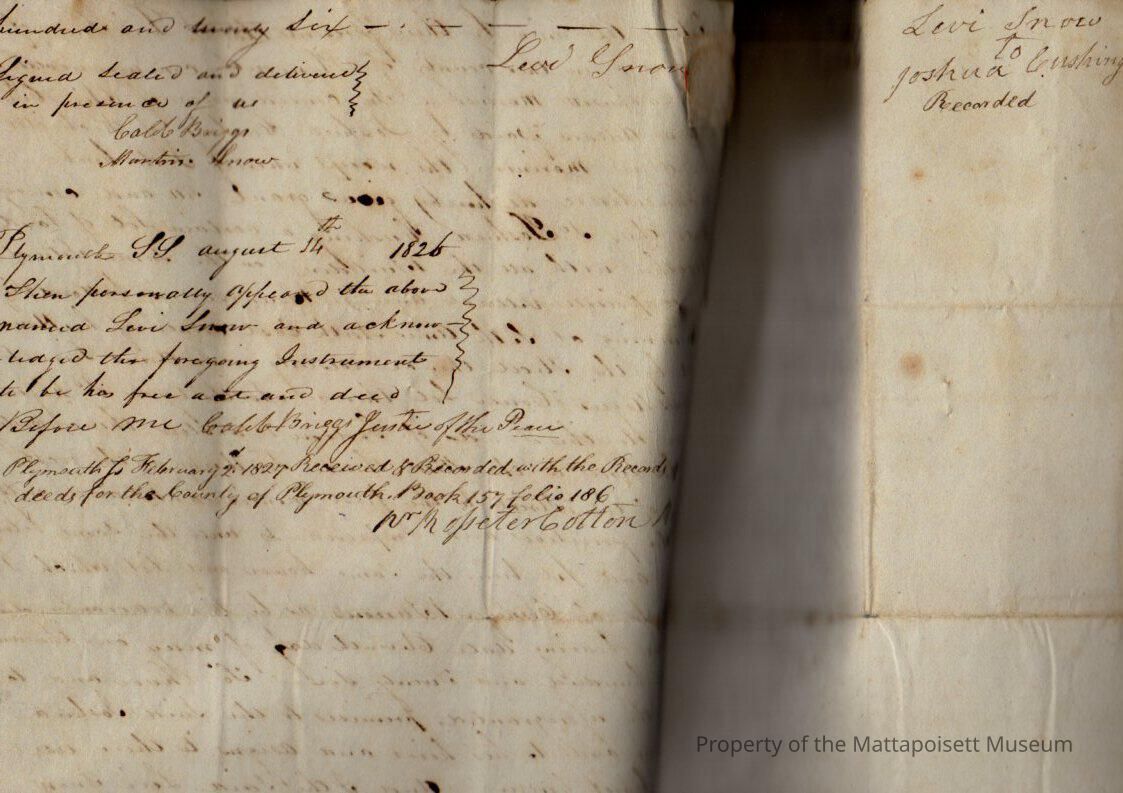 hundred and twenty six
Levi Snow
Signed sealed and delivered
in presence of us
Caleb Briggs
Martin Snow
Plymouth SS. august 14th 1826
Then personally appeared the above
named Levi Snow and acknow-
ledged the foregoing Instrument
to be his free act and deed
Before me Caleb Briggs Justice of the Peace
Plymouth Ss February 1827 Received & Recorded with the Records
deeds for the County of Plymouth. Book 157 folio 186
pr Rosseter Cotton
Levi Snow
to
Joshua Cushing
Recorded
Property of the Mattapoisett Museum